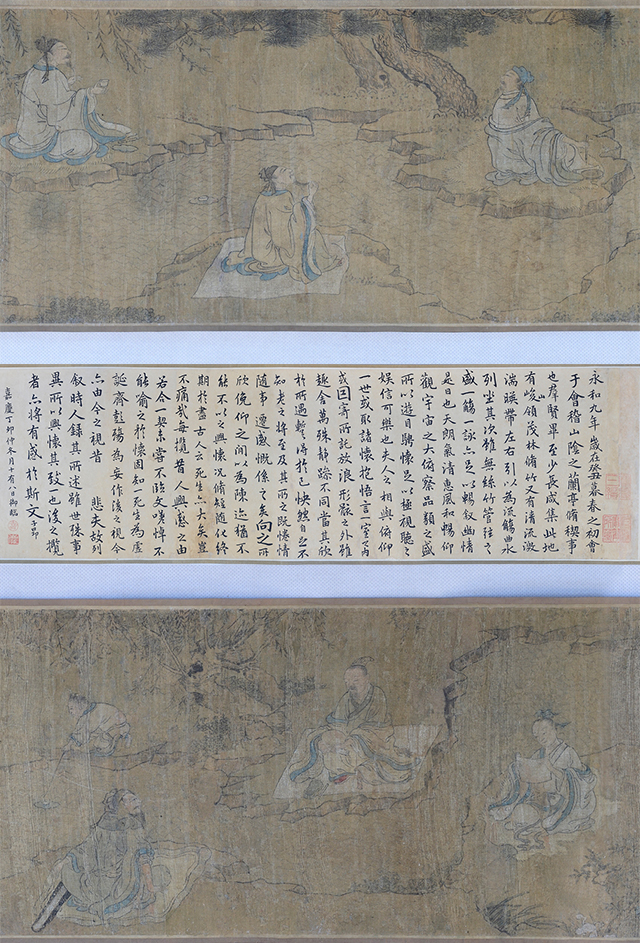 永和九年歲在癸丑暮春之初會
于會稽山陰之蘭亭脩稧事
也羣賢畢至少長咸集此地
有峻領茂林脩竹又有清流激
湍暎帶左右引以為流觴曲水
列坐其次雖無絲竹管弦之
盛一觴一詠亦足以暢敘幽情
是日也天朗氣清惠風和暢仰
觀宇宙之大俯察品類之盛
所以遊目騁懷足以極視聽之
娛信可樂也夫人之相與俯仰
一世或取諸懷抱悟言一室之內
或因寄所託放浪形骸之外雖
趣舍萬殊靜躁不同當其欣
於所遇暫得於己快然自足不
知老之將至及其所之既惓情
隨事遷感慨係之矣向之所
欣俛仰之間以為陳迹猶不
能不以之興懷況脩短隨化終
期於盡古人云死生亦大矣豈
不痛哉每攬昔人興感之由
若合一契未嘗不臨文嗟悼不
能喻之於懷固知一死生為虛
誕齊彭殤為妄作後之視今
亦由今之視昔 悲夫故列
敘時人錄其所述雖世殊事
異所以興懷其致也後之攬
者亦將有感於斯文
嘉慶丁卯仲冬月十有八日御臨